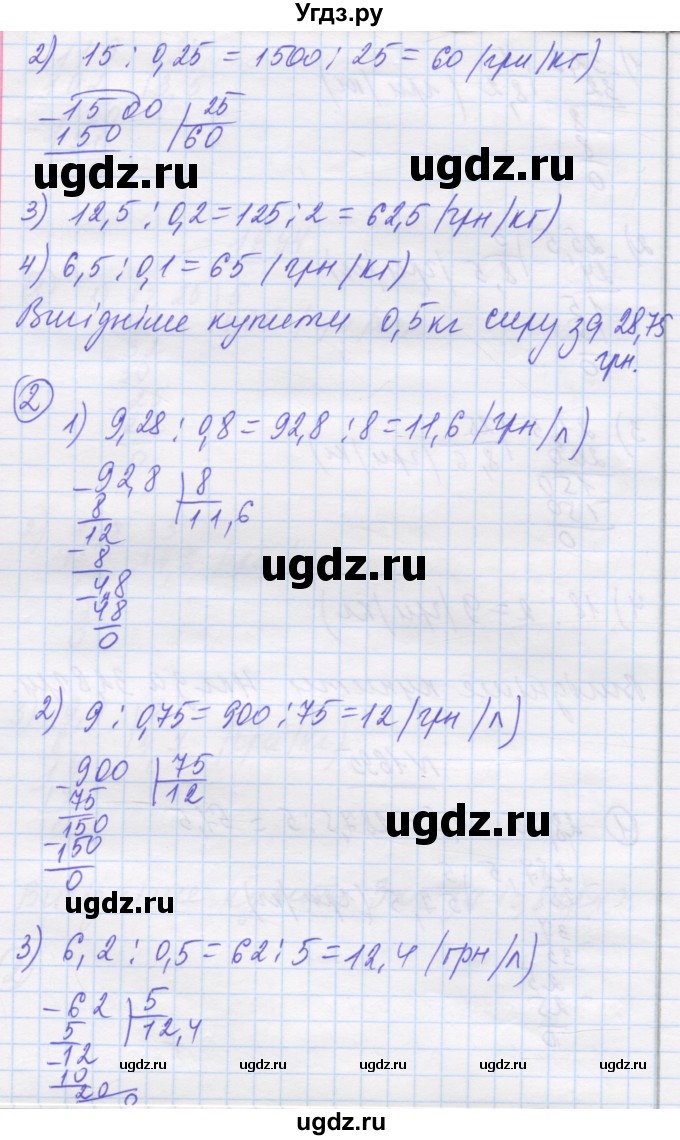 Угдз.ру
2) 15 : 0,25 = 1500 : 25 = 60 (грн/кг)
- 1500 | 25
150 | 60
ugdz.ru
ugdz.ru
3) 12,5 : 0,2 = 125 : 2 = 62,5 (грн/кг)
4) 6,5 : 0,1 = 65 (грн/кг)
Вигідніше купити 0,5 кг сиру за 28,75
грн.
2
1) 9,28 : 0,8 = 92,8 : 8 = 11,6 (грн/л)
- 92,8 | 8
8 | 11,6
- 12
8
- 4,8
48
0
ugdz.ru
2) 9 : 0,75 = 900 : 75 = 12 (грн/л)
- 900 | 75
75 | 12
- 150
150
0
ugdz.ru
ugdz.ru
3) 6,2 : 0,5 = 62 : 5 = 12,4 (грн/л)
- 62 | 5
5 | 12,4
- 12
10
20
ugdz.ru ugdz.ru ugdz.ru ugdz.ru ugdz.ru
ugdz.ru